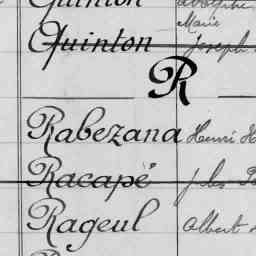 Quinton Adolphe
Marie
Quinton Joseph
R
Rabezana Henri H
Racapé jules
Rageul Albert